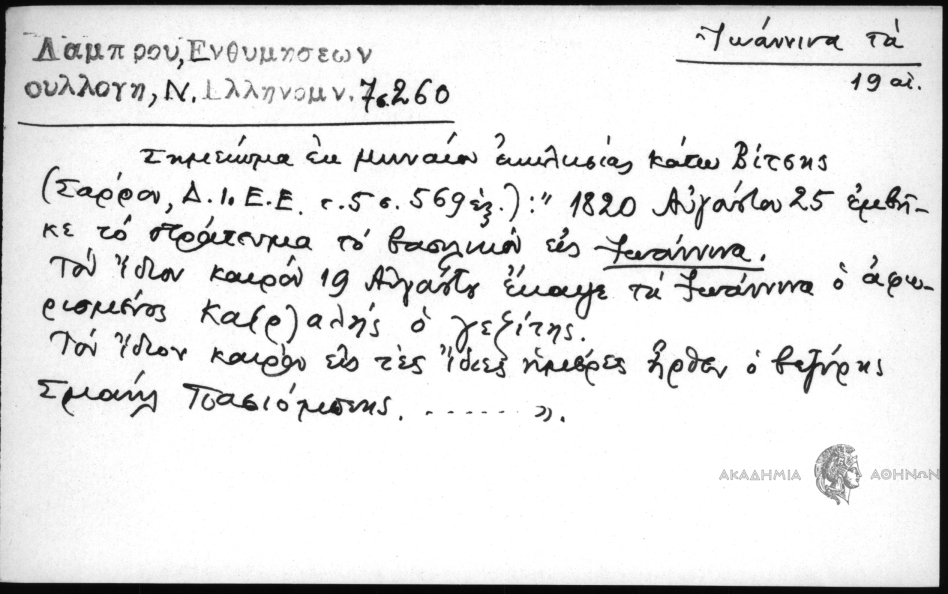 Λαμπρου, Ενθυμησεων
Ἰωάννινα τά
συλλογη, Ν. Ελληνομν. 7 σ. 260
19 αἰ.
Σημείωμα ἐκ μηναίου ἐκκλησίας κάτω Βίτσης
(Σάρρου, Δ.Ι.Ε.Ε. τ. 5 σ. 569 ἑξ.): " 1820 Αὐγούστου 25 ἐμβῆ-
κε τό στράτευμα τό βασιλικόν εἰς Ἰωάννινα.
Τόν ἴδιον καιρόν 19 Αὐγούστ. ἔκαψε τά Ἰωάννινα ὁ ἀφω-
ρισμένος Κα(ρ)αλής ὁ γεζίτης.
Τόν ἴδιον καιρόν εἰς τές ἴδιες ἡμέρες ἦρθεν ὁ βεζήρης
Σμαήλ Πασιόμπεης. . . . . . . . ».
ΑΚΑΔΗΜΙΑ ΑΘΗΝΩΝ